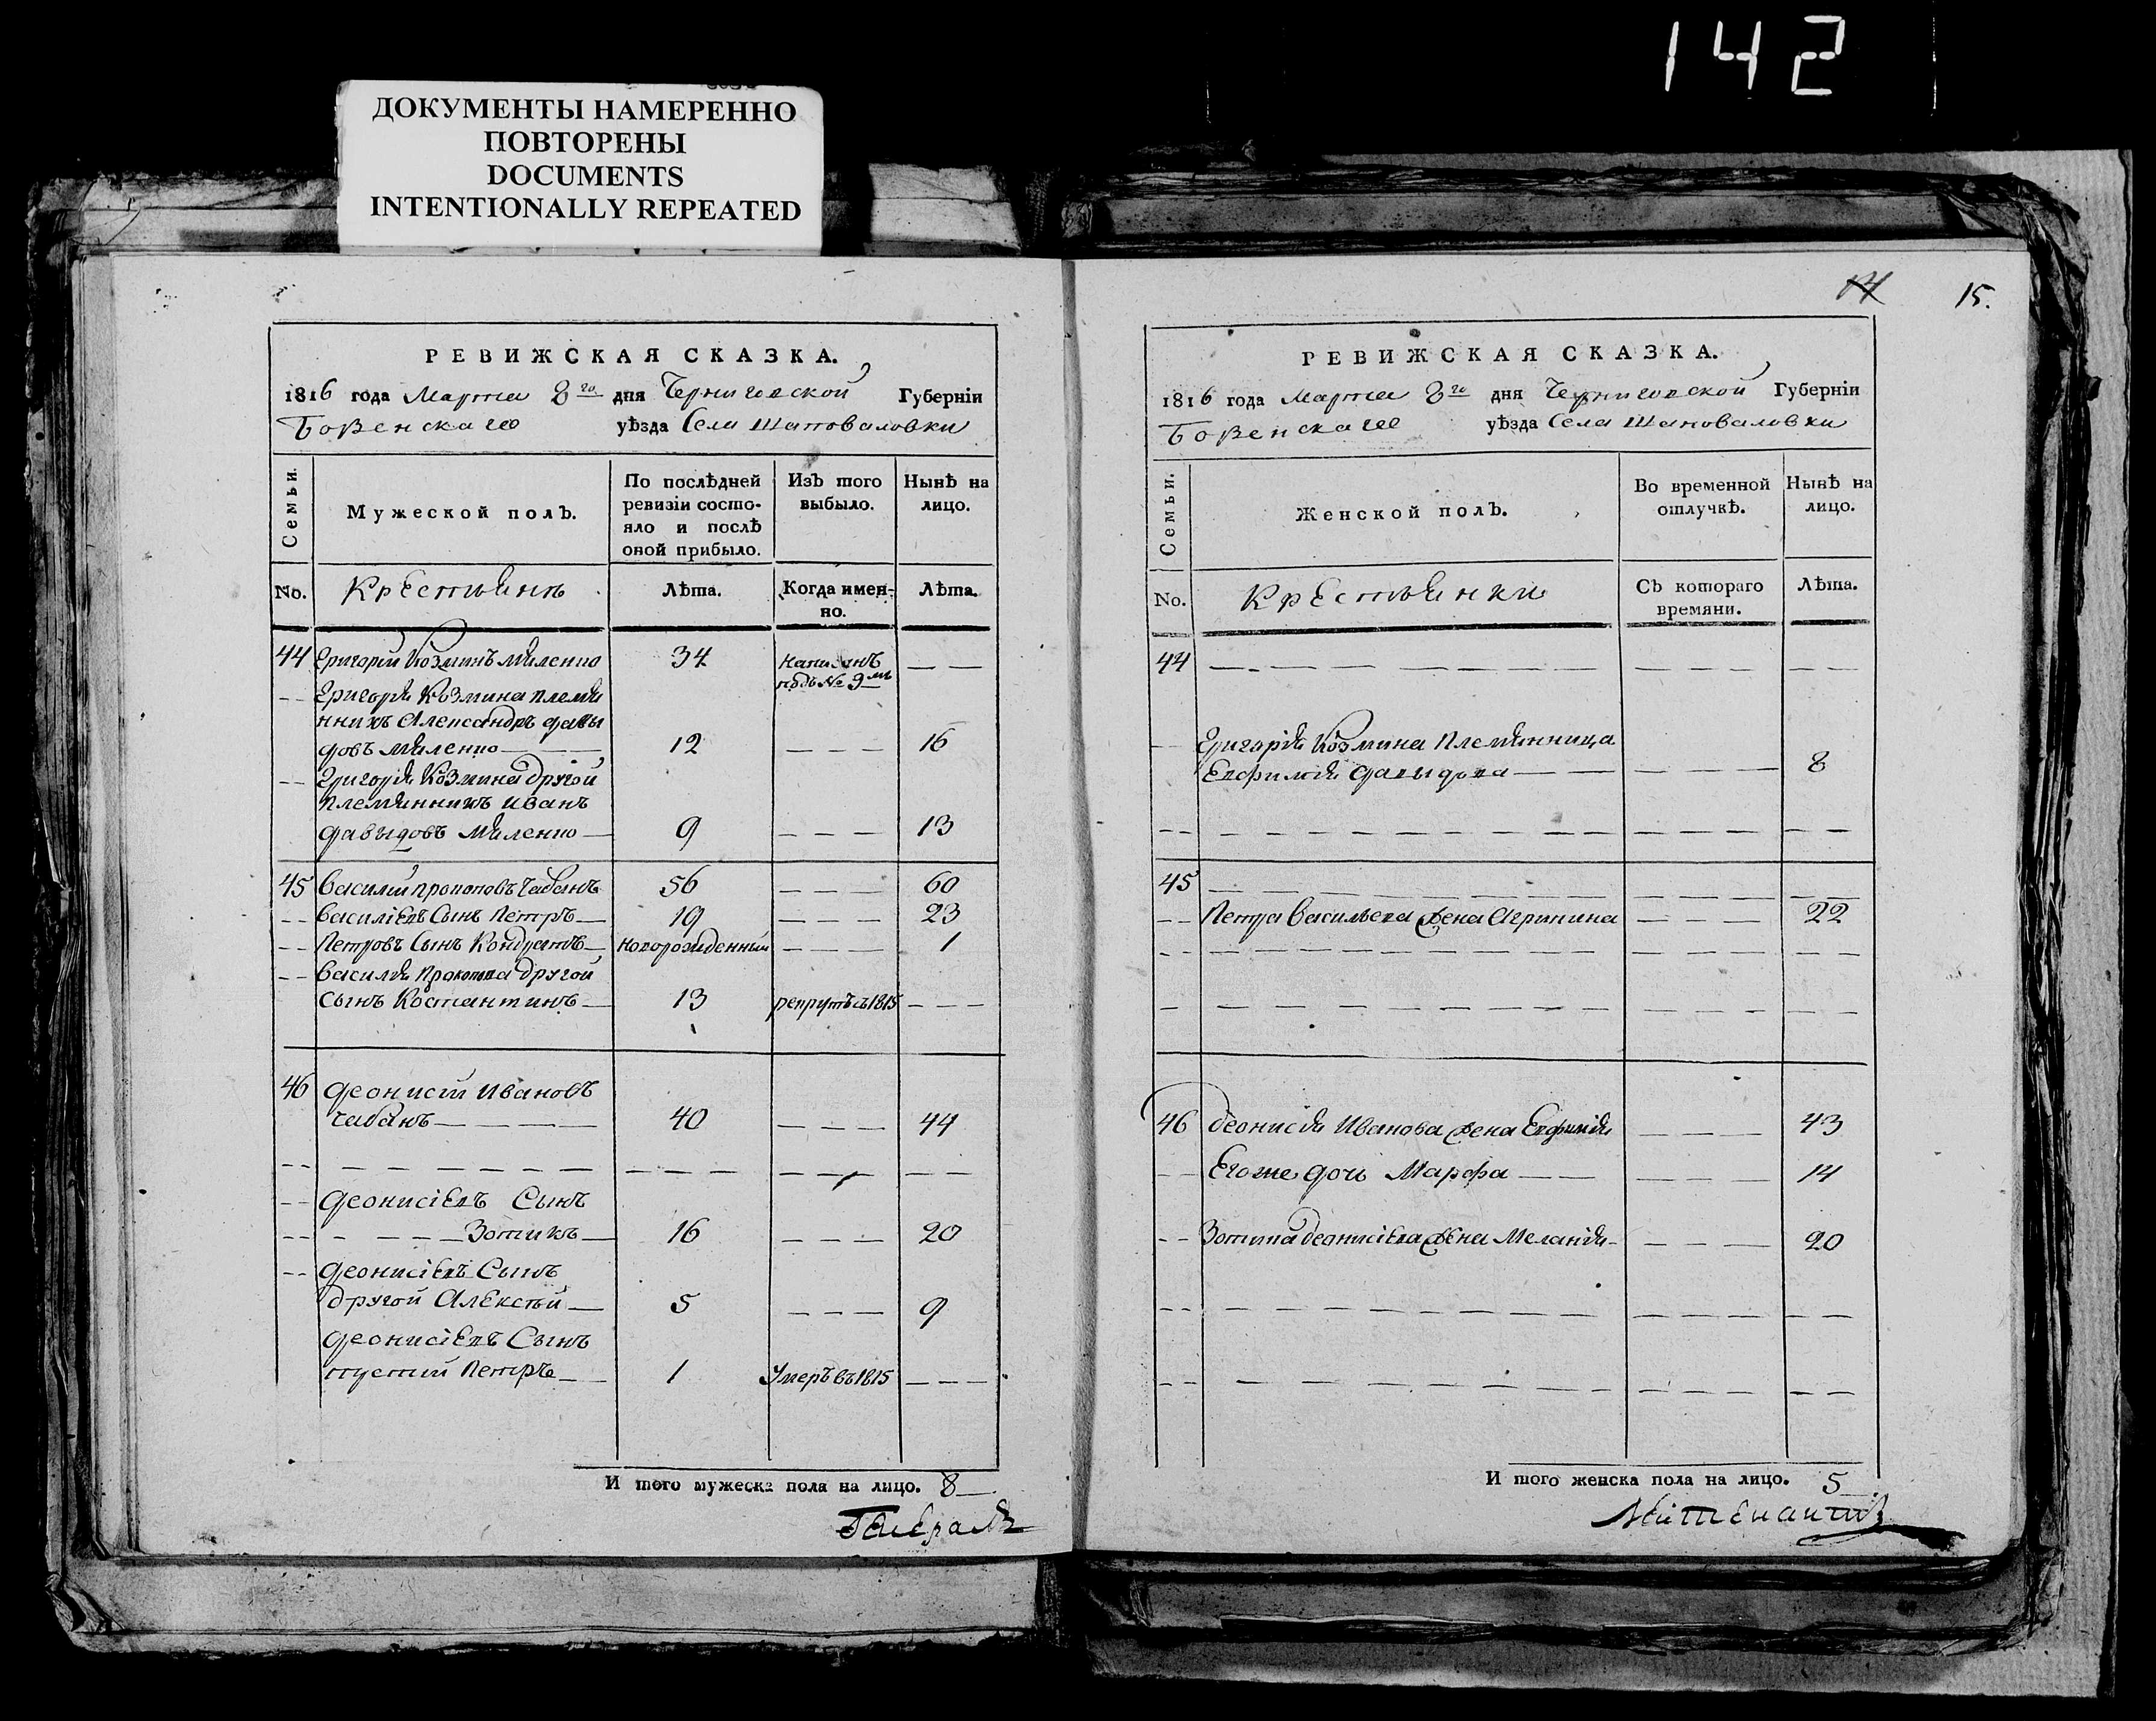 142
ДОКУМЕНТЫ НАМЕРЕННО
ПОВТОРЕНЫ
DOCUMENTS
INTENTIONALLY REPEATED
РЕВИЖСКАЯ СКАЗКА.
1816 года Марта 8го дня Черниговской Губерніи
Борзенскаго уѣзда Села Шаповаловки
Семьи.
Мужеской полЪ.
По послѣдней ревизіи состояло и послѣ оной прибыло.
ИзЪ того выбыло.
НынѣЪ на лицо.
No.
Крестьянъ
Лѣта.
Когда именно.
Лѣта.
44 Григорій Козминъ Миленко 34 под № 9мъ — —
— Григорія Козмина племя
нникъ Александръ давы
довъ Миленко — — 12 — — — 16
— Григорія Козмина другой
племянникъ Иванъ
давыдовъ Миленко — 9 — — — 13
45 Василий Прокоповъ Чабанъ 56 — — — 60
— Василіевъ Сынъ Петръ — 19 — — — 23
— Петровъ Сынъ Кондратъ — новорожденный — — — 1
— Василия Прокопова другой
сынъ Костантинъ — 13 рекрутъ въ 1815 — — —
46 Деонисий Ивановъ
Чабанъ — — — — 40 — — — 44
— Деонисіевъ Сынъ
— — — — Зотикъ — 16 — — — 20
— Деонисіевъ Сынъ
другой Алексѣй — 5 — — — 9
Деонисіевъ Сынъ
третий Петръ — 1 Умеръ въ 1815 — — —
И того мужеска пола на лицо. 8
Генералъ
14 15.
РЕВИЖСКАЯ СКАЗКА.
1816 года Марта 8го дня Черниговской Губерніи
Борзенскаго уѣзда Села Шаповаловки
Семьи.
Женской полЪ.
Во временной отлучкѣ.
Нынѣ на лицо.
No.
Крестьянки
СЪ котораго времяни.
Лѣта.
44 — — — — — — — — — — — —
— Григорія Козмина Племянница
Евфимія давыдова — — — — — 8
45 — — — — — — — — — —
— Петра Васильева жена Агрипина — — — 22
46 Деонисія Иванова жена Евфимія — — — 43
— Егоже дочь Марфа — — — — — 14
— Зотика Деонисіева жена Меланія — — — — 20
И того женска пола на лицо. 5
Лейтенантъ